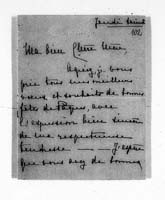 Jeudi Saint
102
Ma bien Chère Mère,
Agréez je vous
que tous mes meilleurs
vœux et souhaits de bonnes
fêtes de Pâques, avec
l'expression bien sincère
de ma respectueuse
tendresse — J'espère
que vous avez de bonnes